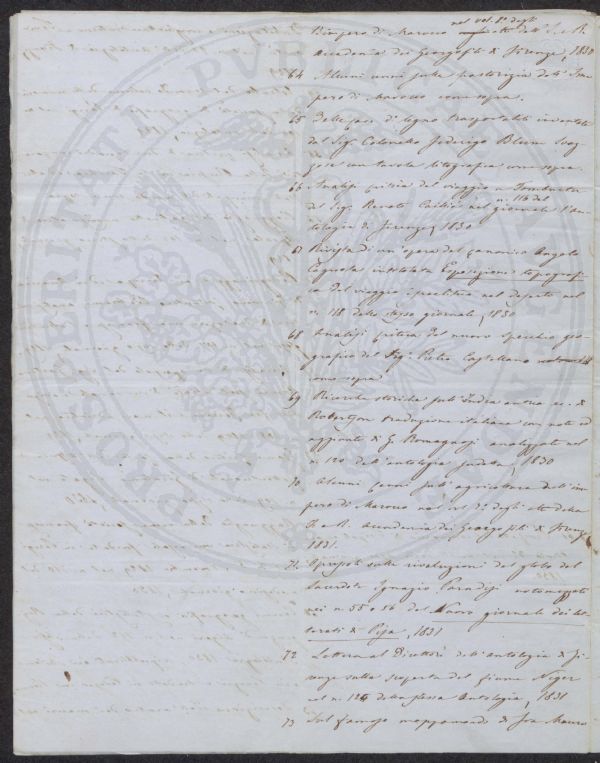 nel vol. 8° degli
l'impero di Marocco atti dell' I. e R.
Accademia dei Georgofili di Firenze, 1830
64 Alcuni cenni sulla pastorizia dell' Im-
pero di Marocco come sopra.
65 Delle case di legno trasportabili inventate
dal Sig. Colonnello Federigo Blum
con tavola litografica come sopra.
66 Analisi critica del viaggio a Tombuctu
n. 116 del
del Sig. Renato Caillié nel giornale l'an-
tologia di Firenze, 1830
67 Rivista di un' opera del canonico Angelo
Cagnola intitolata Esposizione topografi-
ca del viaggio israelitico nel deserto nel
n. 118 dello stesso giornale, 1830
68 Analisi critica del nuovo specchio geo-
grafico del Sig. Pietro Castellano
come sopra
69 Ricerche storiche sull' India antica di
Robertson traduzione italiana con note ed
aggiunte di G. Romagnosi analizzate nel
n. 120 dell' antologia suddetta, 1830
70 Alcuni cenni sull' agricoltura dell' im-
pero di Marocco nel vol. degli atti della
I. e R. Accademia dei Georgofili di Firenze
1831.
71 sulle rivoluzioni del globo del
Sacerdote Ignazio Paradisi notomizzati
nei n. 55 e 56 del Nuovo giornale dei let-
terati di Pisa, 1831
72 Lettera al Direttore dell' antologia di Fi-
renze sulla scoperta del fiume Niger
nel n. 124 della stessa Antologia, 1831
73 Sul famoso mappamondo di Fra Mauro
PROSPERITATI PUBLICAE